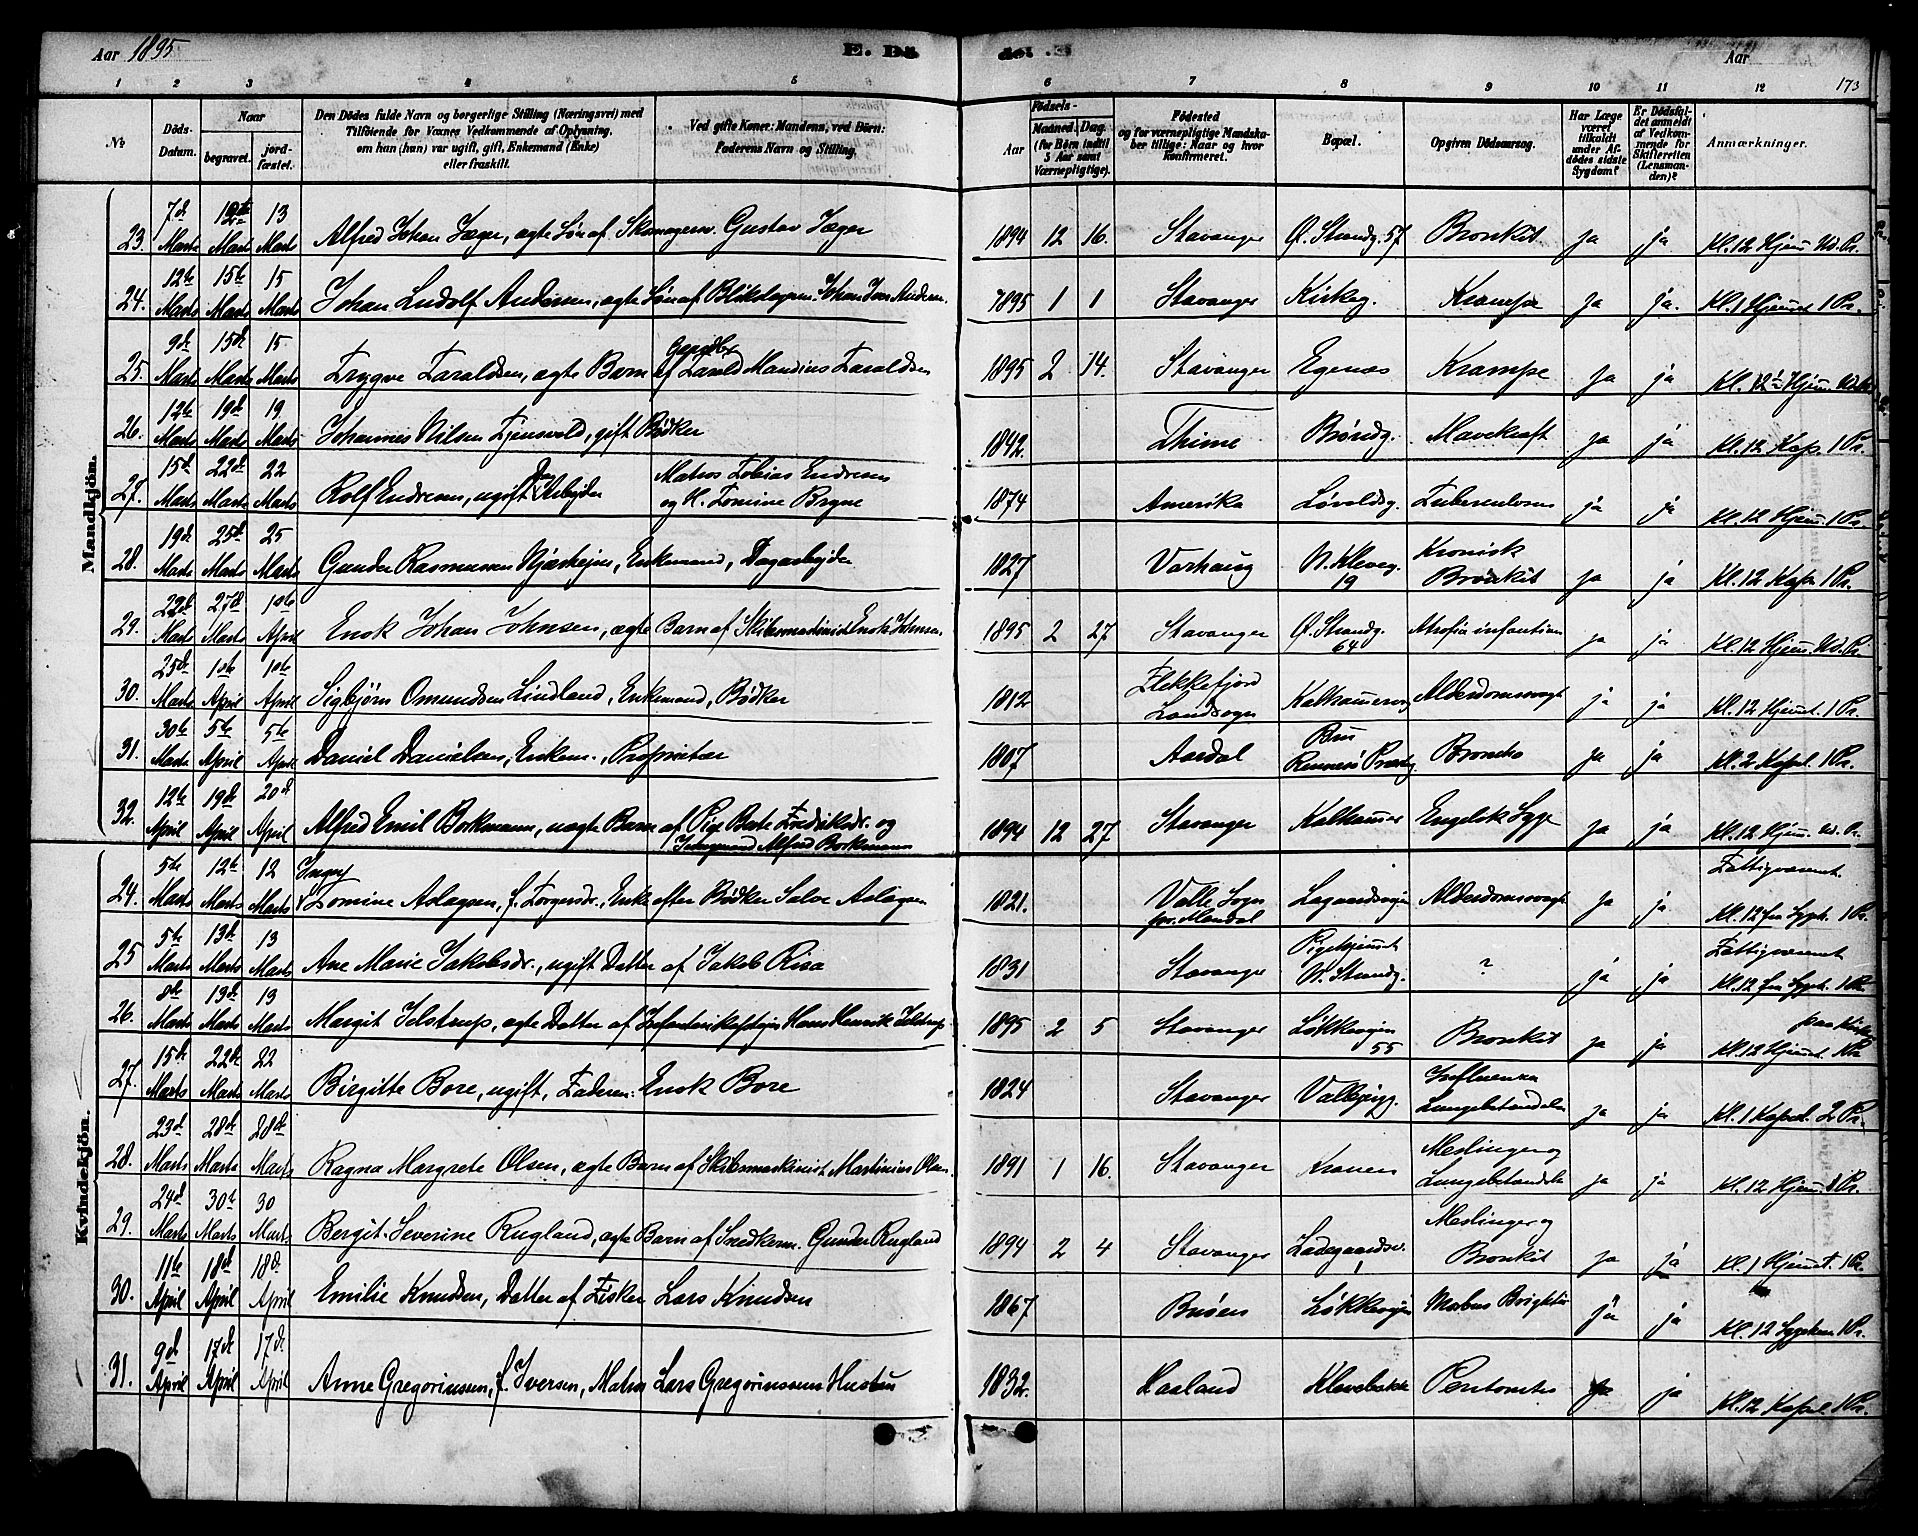 Aar 1895
E. Dö
de. E
Aar
173
1 2 3 4 5 6 7 8 9 10 11 12
No
Döds-Datum.
Naar
begravet.
jord-fæstet.
Den Dödes fulde Navn og borgerlige Stilling (Næringsvei) med Tilföiende for Voxnes Vedkommende af Oplysning, om han (hun) var ugift, gift, Enkemand (Enke) eller fraskilt.
Ved gifte Koner: Mandens, ved Börn: Faderens Navn og Stilling.
Födsels-
Aar
Maaned. Dag.
(for Börn indtil 5 Aar samt Værnepligtige).
Födested og for værnepligtige Mandskaber tillige: Naar og hvor konfirmeret.
Bopæl.
Opgiven Dödsaarsag.
Har Læge været tilkaldt under Afdödes sidste Sygdom?
Er Dödsfaldet anmeldt af Vedkommende for Skifteretten (Lensmanden)?
Anmærkninger.
Mandkjön.
23. 7d Marts 12te Marts 13 Marts Alfred Johan Jæger, ægte Søn af Skomagersv. Gustav Jæger 1894 12 16. Stavanger Ø. Strandg. 57 Bronkit ja ja Kl. 12 Hjem Ud. Pr.
24. 12te Marts 15te Marts 15 Marts Johan Ludolf Andersen, ægte Søn af Blikslagersv. Johan Andersen. 1895 1 1 Stavanger Kirkeg. Krampe ja ja. Kl. 1 Hjemmet 1 Pr.
25. 9d Marts 15de Marts 15 Marts Trygve Taraldsen, ægte Barn af Tarald Mandius Taraldsen 1895 2 14. Stavanger Egenæs Krampe ja ja Kl. 12 Hjem.
26. 12te Marts 19d Marts 19 Marts Johannes Nilsen Tjensvold, gift Bødker 1842. Thime Brøndg. Mavekræft ja ja Kl. 12 Kap. 1 Pr.
27. 15d Marts 22de Marts 22 Marts Rolf Endresen, ugift Arbejder Matros Tobias Endresen og H. Tomine Bryne 1874 Amerika Løvoldsg. Tuberculoses ja ja Kl. 12 Hjem. 1 Pr.
28. 19d Marts 25d Marts 25 Marts Gunder Rasmussen Njærhejm, Enkemand, Dagarbejder 1827 Varhaug N. Kleveg. 19 Kronisk Bronkit ja ja Kl. 12 Kap. 1 Pr.
29. 22d Marts 27d Marts 1ste April Enok Johan Johnsen, ægte Barn af Skibsmaskinist Enok Johnsen 1895 2 27 Stavanger Ø. Strandg. 64 Atrofia infantum ja ja Kl. 12 Hjem. Ud. Pr.
30. 25d Marts 1ste April 1ste April Sigbjørn Omundsen Lindland, Enkemand, Bødker 1812 Flekkefjord Landsogn Kalhammerv. Alderdomssvagh. ja ja Kl. 12 Hjemmet. 1 Pr.
31. 30te Marts 5te April 5te April Daniel Danielsen, Enkem., Proprietær 1807 Aardal Bru Rennesø Præstg. Broncho ja ja Kl. 2 Kapel. 1 Pr.
32. 12te April 19d April 20d April Alfred Emil Borkmann, uægte Barn af Pige Berte Fredriksdr. og Alfred Borkmann 1894 12 27 Stavanger Kalhammer Engelsk Syge ja ja Kl. 12 Hjem. Ud. Pr.
Kvindekjön.
24. 5te Marts 12te Marts 12 Marts Inger Tomine Aslagsen, f. Torgersdr., Enke efter Bødker Salve Aslagsen 1821. Valle Sogn pr. Mandal Lagaardsvejen Alderdomssvagh. ja ja Fattigvæsenet. Kl. 12 fra Sygeh. 1 Pr.
25 5te Marts 13de Marts 13 Marts Ane Marie Jakobsdr., ugift Datter af Jakob Risa 1831 Stavanger Pigehjemmet N. Strandg. ? ja ja Fattigvæsenet Kl. 12 fra Sygeh. 1 Pr.
26. 8de Marts 13d Marts 13 Marts Margit Jelstrup, ægte Datter af Hans Henrik Jelstrup 1895 2 5 Stavanger Løkkevejen 55 Bronkit ja ja Kl. 12 Hjemmet. 1 Pr.
27. 15d Marts 22de Marts 22 Marts Birgitte Bore, ugift, Faderen: Enok Bore 1824 Stavanger Valbjergg. Influenza Lungebetændelse ja ja Kl. 1 Kapel. 2 Pr.
28. 23d Marts 28de Marts 28de Marts Ragna Margrete Olsen, ægte Barn af Skibsmaskinist Martinius Olsen. 1891 1 16. Stavanger Kranen Meslinger og Lungebetændelse ja ja Kl. 12 Hjem. 1 Pr.
29. 24d Marts 30t Marts 30 Marts Bergit Severine Rugland, ægte Barn af Snedkerm. Gunder Rugland 1894 2 4 Stavanger Ladegaardsv. 1 Meslinger og Bronkit ja ja Kl. 1 Hjemmet. 1 Pr.
30. 11te April 18d April 18d April Emilie Knudsen, Datter af Fisker Lars Knudsen 1867 Buøen Løkkevejen Morbus Brightii ja ja Kl. 12 Sygehus. 1 Pr.
31. 9d April 17de April 17de April Anne Gregoriussen, f. Iversen, Matros Lars Gregoriussens Hustru 1832. Haaland Klevebakke Peritonitis ja ja Kl. 12 Kapel. 1 Pr.